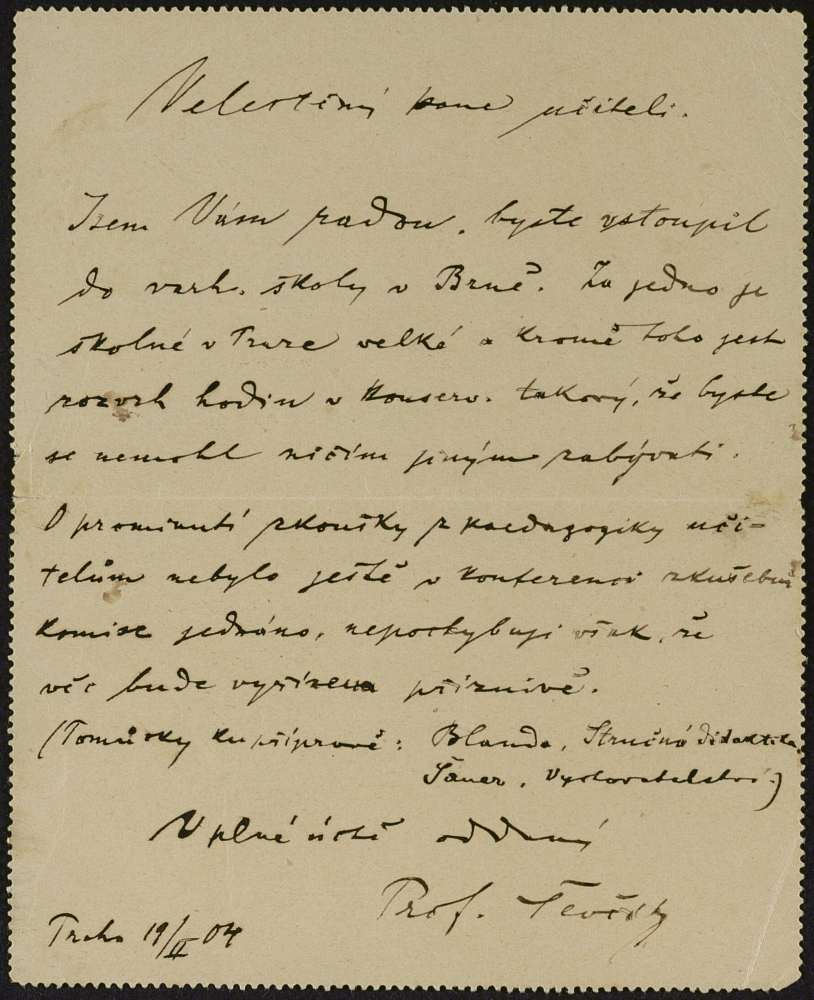 Velectěný pane učiteli.
Jsem Vám radou, byste vstoupil
do varh. školy v Brně. Za jedno je
školné v Praze velké a kromě toho jest
rozvrh hodin v konserv. takový, že byste
se nemohl ničím jiným zabývati.
O prominutí zkoušky z paedagogiky uči-
telům nebylo ještě v konferenci zkušební
komise jednáno, nepochybuji však, že
věc bude vyřízena příznivě.
(Pomůcky ku přípravě: Blanda, Stručná didaktika,
Šauer, Vychovatelství.)
V plné úctě oddaný
Prof. Ševčík
Praha 19/II 04